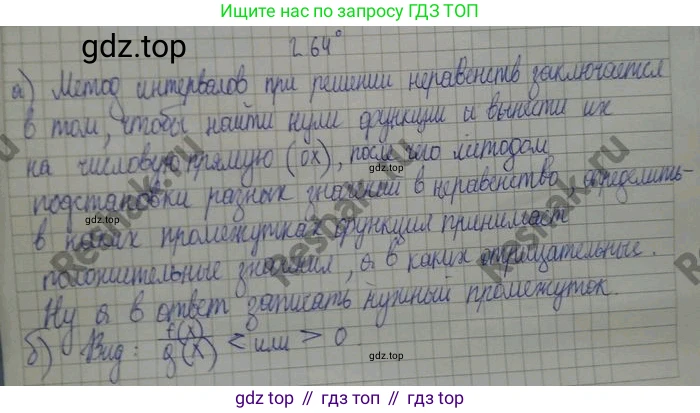 Ищите нас по запросу ГДЗ ТОП
гдз.top
2.64°
а) Метод интервалов при решении неравенств заключается
в том, чтобы найти нули функции и вынести их
на числовую прямую (ОХ), после чего методом
подстановки разных значений в неравенство, определить
gdz.top
в каких промежутках функция принимает
положительные значения, а в каких отрицательные.
gdz.top
Ну а в ответ записать нужный промежуток.
gdz.top
б) Вид: f(x)/g(x) < или > 0
gdz.top
Reshak.ru
Reshak.ru
Reshak.ru
gdz.top // гдз.top // gdz.top // гдз.top